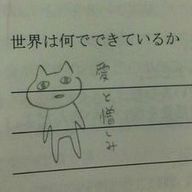 世界は何でできているか
愛と憎しみ